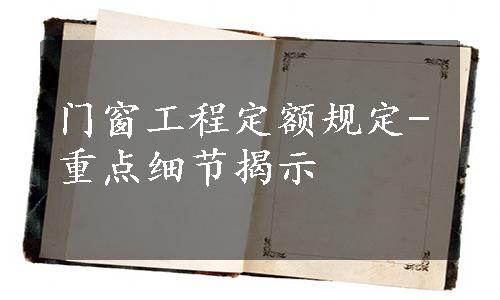 门窗工程定额规定-
重点细节揭示